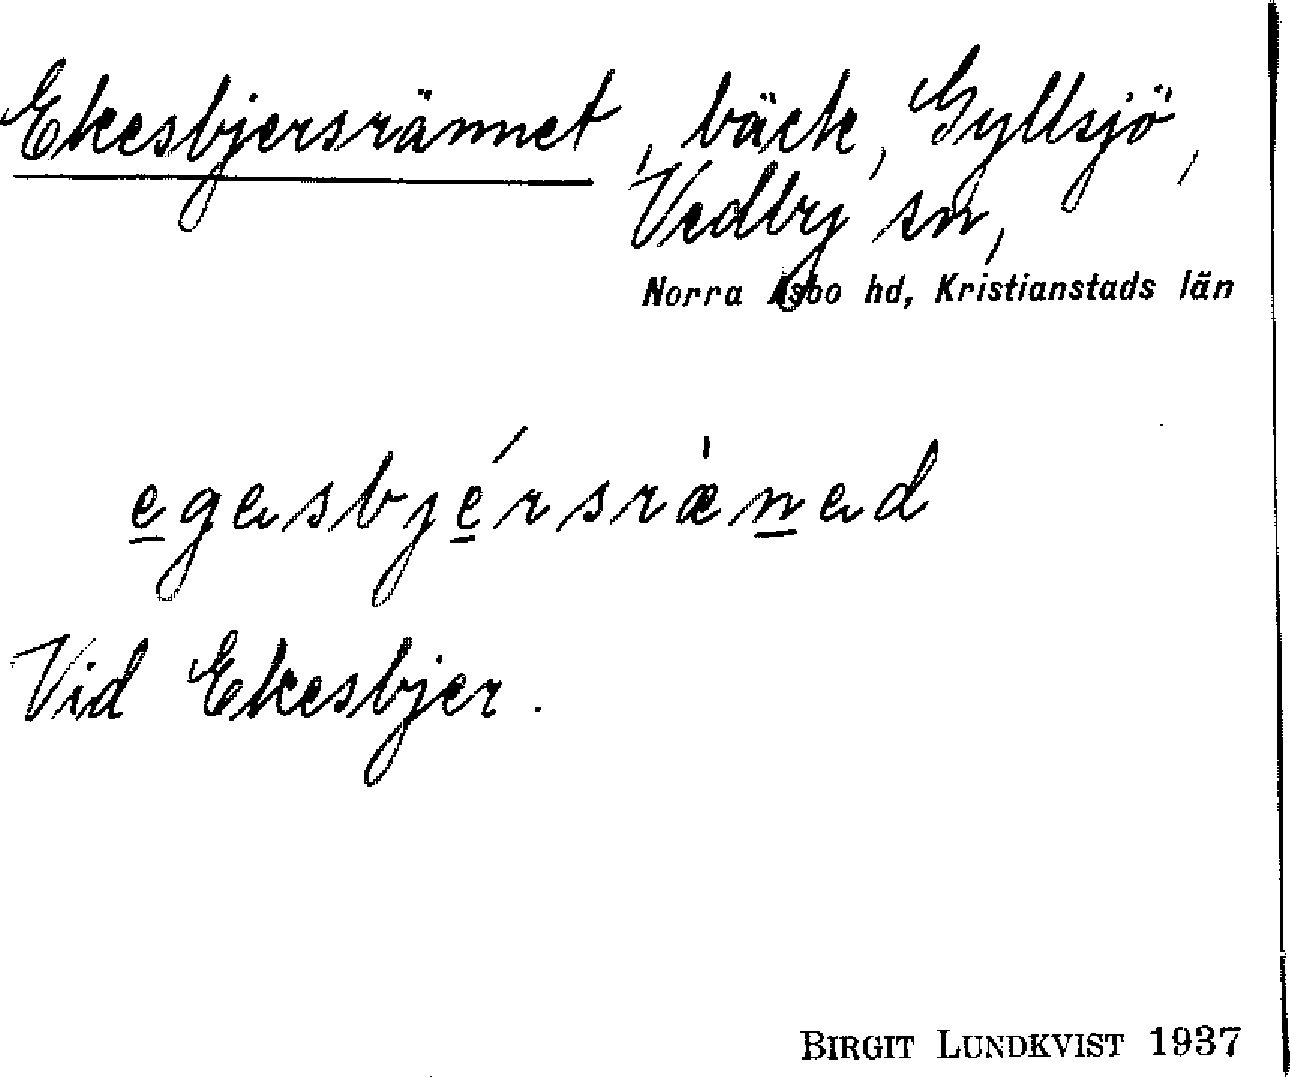 Ekesbjersrännet, bäck, Gyllsjö,
Vedby sn,
Norra Åsbo hd, Kristianstads län
egasbjérsræ̀nad
Vid Ekesbjer.
BIRGIT LUNDKVIST 1937